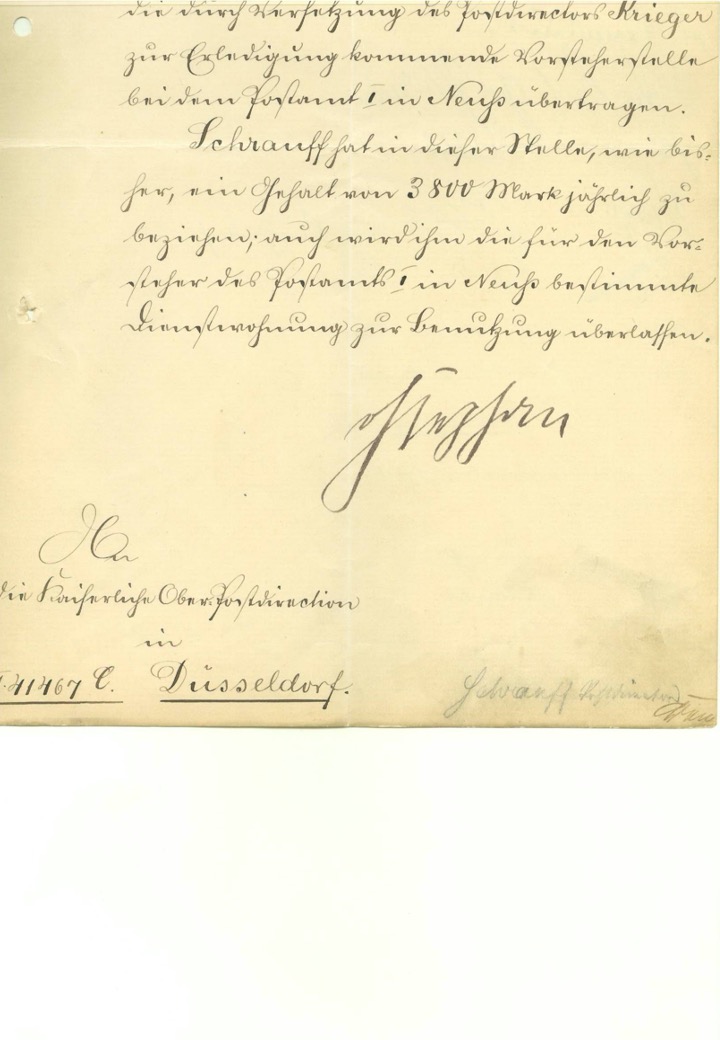 die durch Versetzung des Postdirectors Krieger
zur Erledigung kommende Vorsteherstelle
bei dem Postamt I in Neuß übertragen.
Schrauff hat in dieser Stelle, wie bis-
her, ein Gehalt von 3800 Mark jährlich zu
beziehen; auch wird ihm die für den Vor-
steher des Postamts I in Neuß bestimmte
Dienstwohnung zur Benutzung überlassen.
Stephan
An
die Kaiserliche Ober-Postdirection
in
41467 C. Düsseldorf.
Schrauff Postdirector